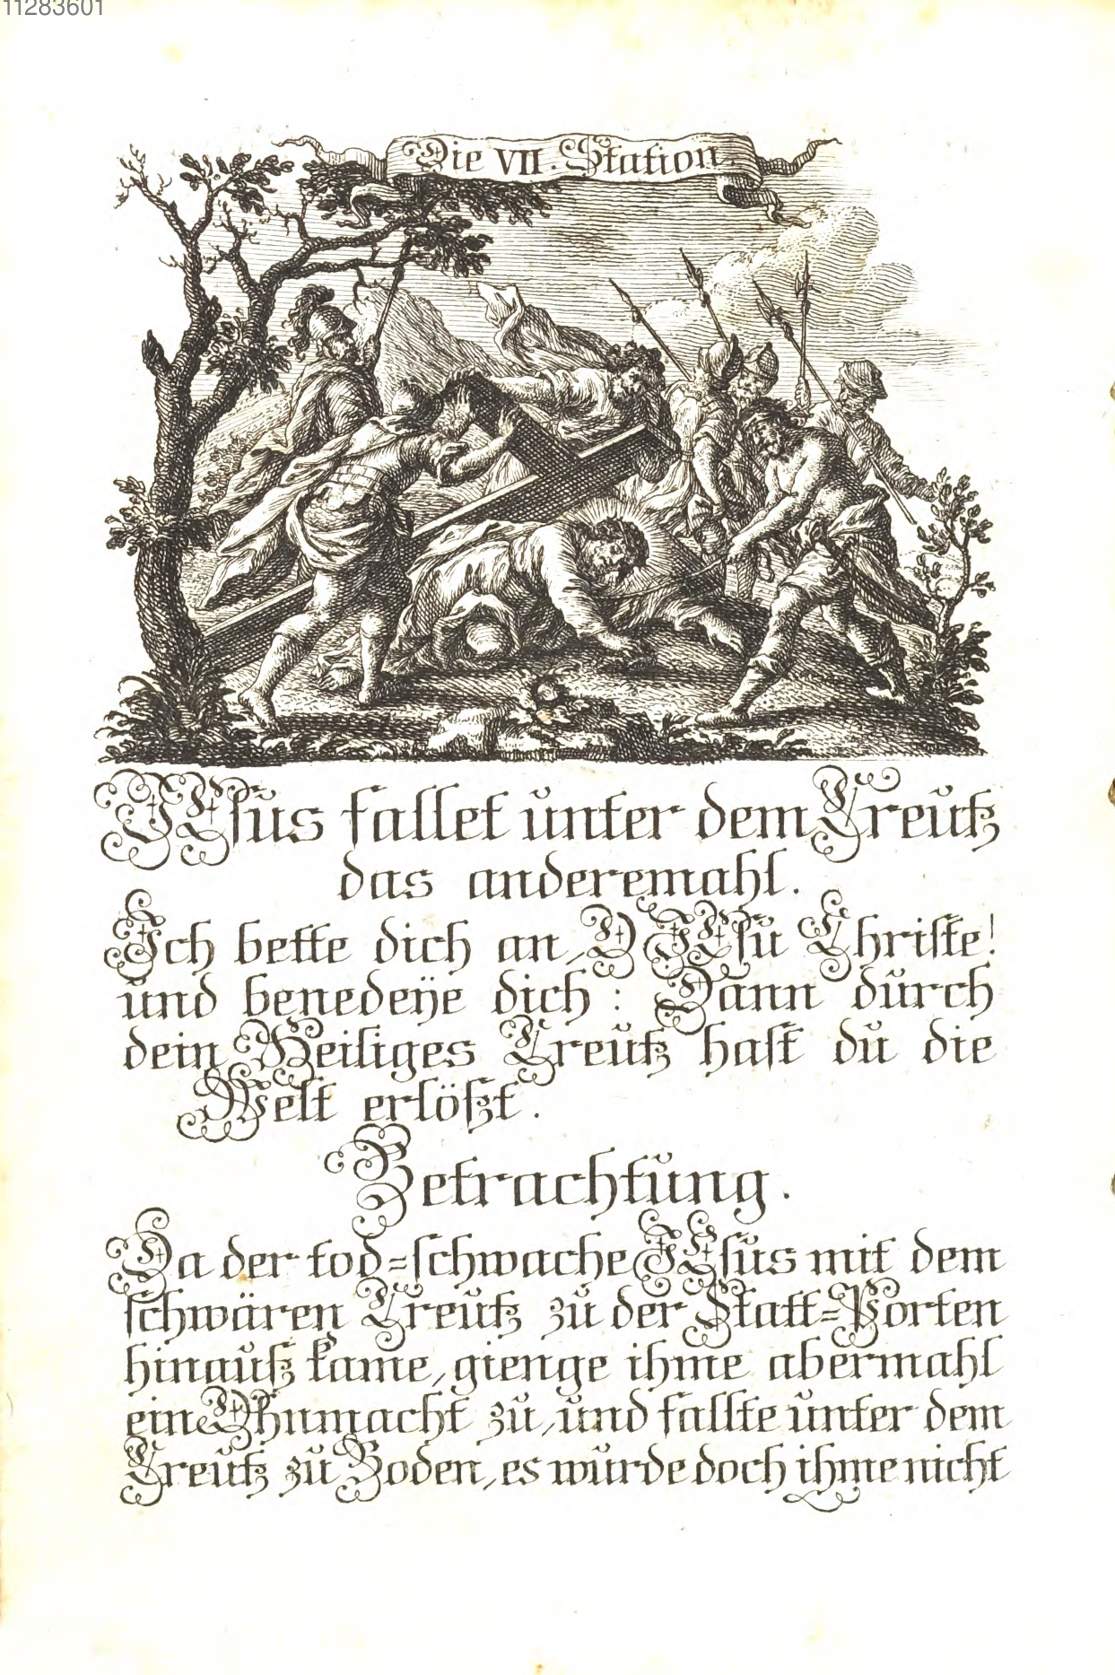 11283601
Die VII. Station.
JEsus fallet unter dem Creutz
das anderemahl.
Ich bette dich an, O JEsu Christe!
und benedeÿe dich: Dann durch
dein Heiliges Creutz hast du die
Welt erlößt.
Betrachtung.
Da der tod=schwache JEsus mit dem
schwären Creutz zu der Statt=Porten
hinauß kame, gienge ihme abermahl
ein Ohnmacht zu, und fallte unter dem
Creutz zu Boden, es wurde doch ihme nicht